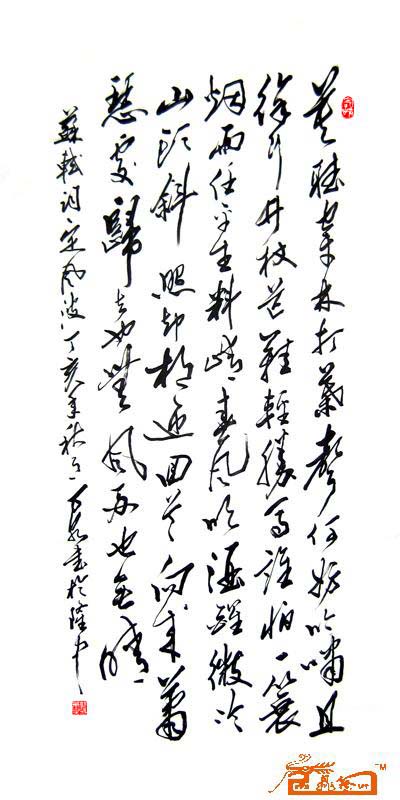 莫聽穿林打葉聲何妨吟嘯且
徐行竹杖芒鞋輕勝馬誰怕一蓑
烟雨任平生料峭春风吹酒醒微冷
山頭斜照却相迎回首向来蕭
瑟處歸去也無风雨也無晴
蘇軾词定风波丁亥年秋書於隆中